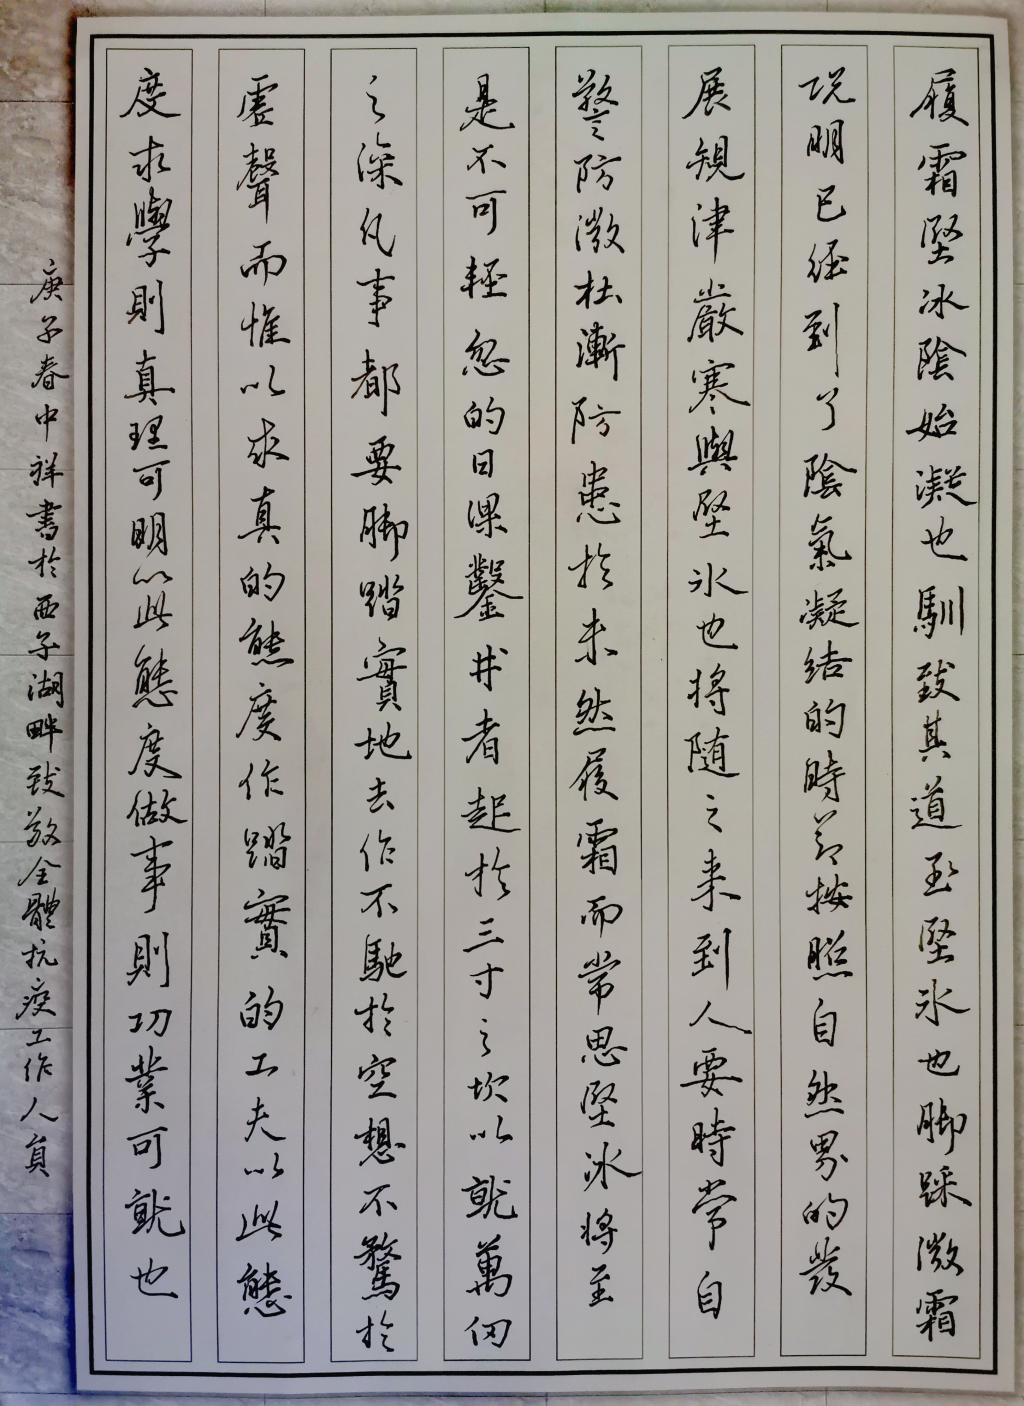 履霜堅冰陰始凝也馴致其道至堅氷也脚踩微霜
説明已經到了陰氣凝結的時節按照自然界的發
展規津嚴寒與堅氷也將随之来到人要時常自
警防微杜漸防患於未然履霜而常思堅冰將至
是不可輕忽的日課鑿井者起於三寸之坎以就萬仞
之深凡事都要脚踏實地去作不馳於空想不騖於
虛聲而惟以求真的態度作踏實的工夫以此態
度求學則真理可明以此態度做事則功業可就也
庚子春中祥書於西子湖畔致敬全體抗疫工作人員